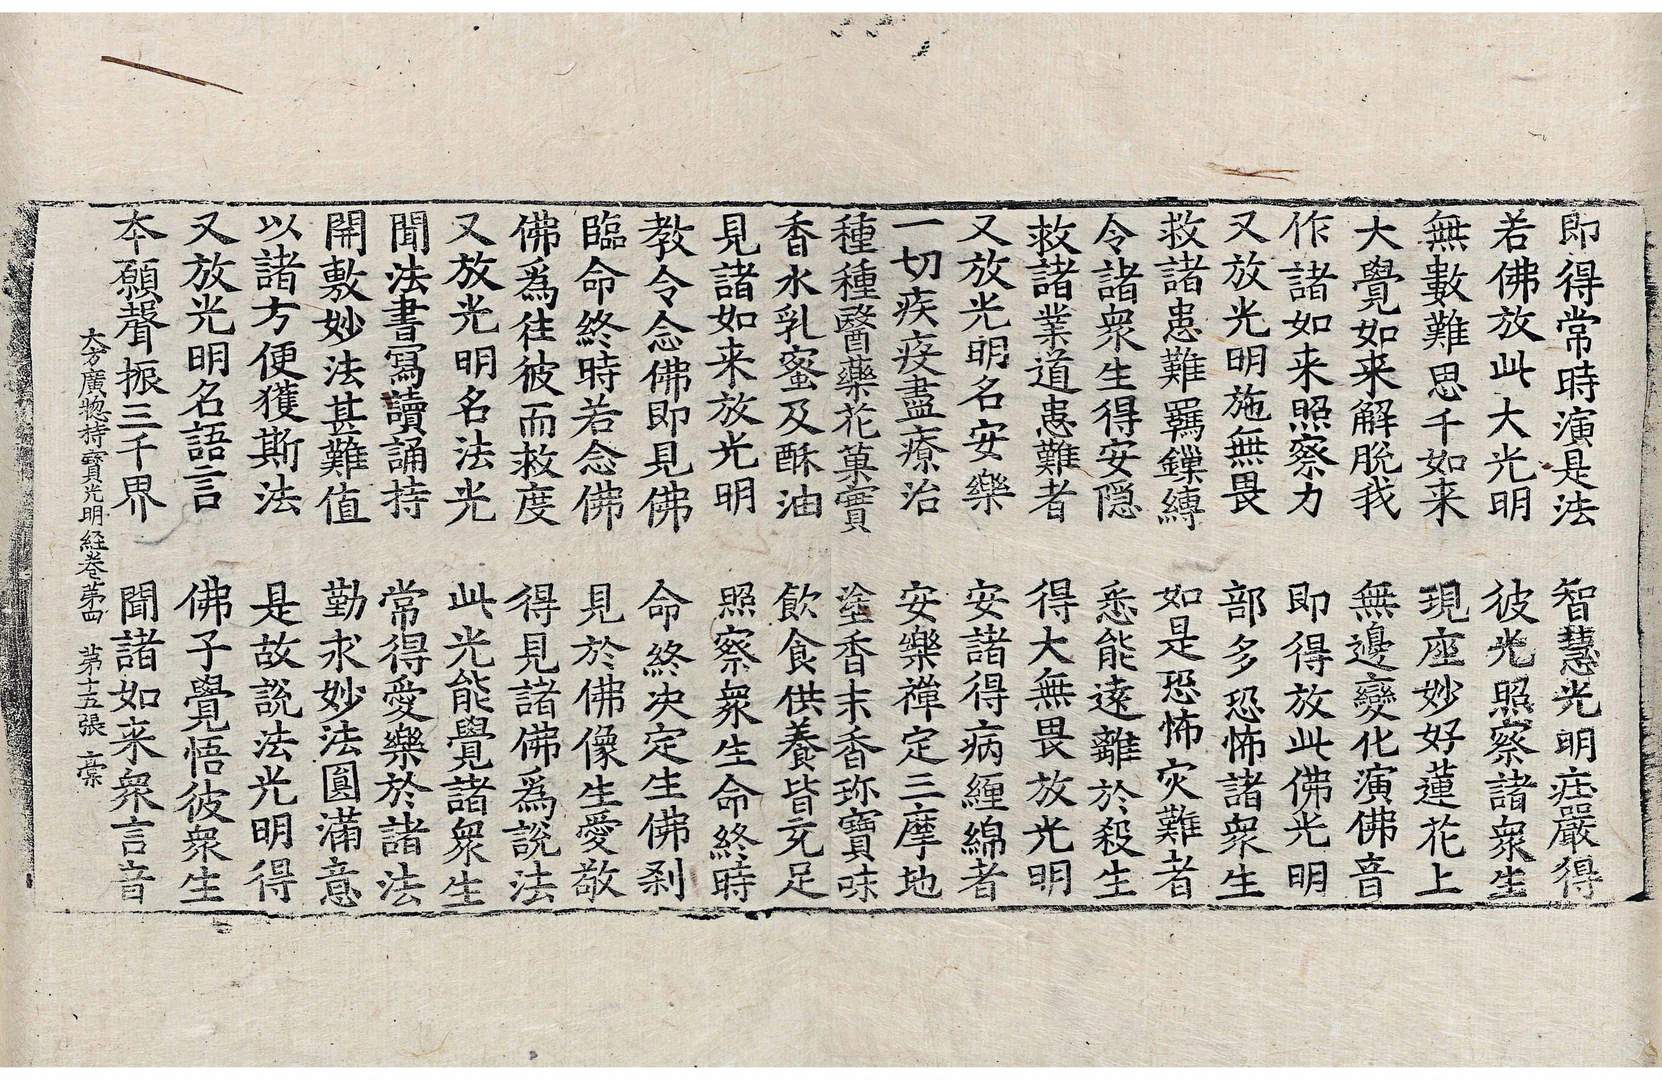 即得常時演是法　智慧光明庄嚴得
若佛放此大光明　彼光照察諸衆生
無數難思千如来　現座妙好蓮花上
大覺如来解脫我　無邊變化演佛音
作諸如来照察力　即得放此佛光明
又放光明施無畏　部多恐怖諸衆生
救諸患難羈鏁縛　如是恐怖灾難者
令諸衆生得安隱　悉能遠離於殺生
救諸業道患難者　得大無畏放光明
又放光明名安樂　安諸得病纏綿者
一切疾疫盡療治　安樂禪定三摩地
種種醫藥花菓實　塗香末香珎寶味
香水乳蜜及酥油　飲食供養皆充足
見諸如来放光明　照察衆生命終時
教令念佛即見佛　命終决定生佛刹
臨命終時若念佛　見於佛像生愛敬
佛爲往彼而救度　得見諸佛爲說法
又放光明名法光　此光能覺諸衆生
聞法書寫讀誦持　常得愛樂於諸法
開敷妙法甚難值　勤求妙法圓滿意
以諸方便獲斯法　是故說法光明得
又放光明名語言　佛子覺悟彼衆生
本願聲振三千界　聞諸如来衆言音
大方廣惣持寶光明経卷苐四　苐十五張　棠